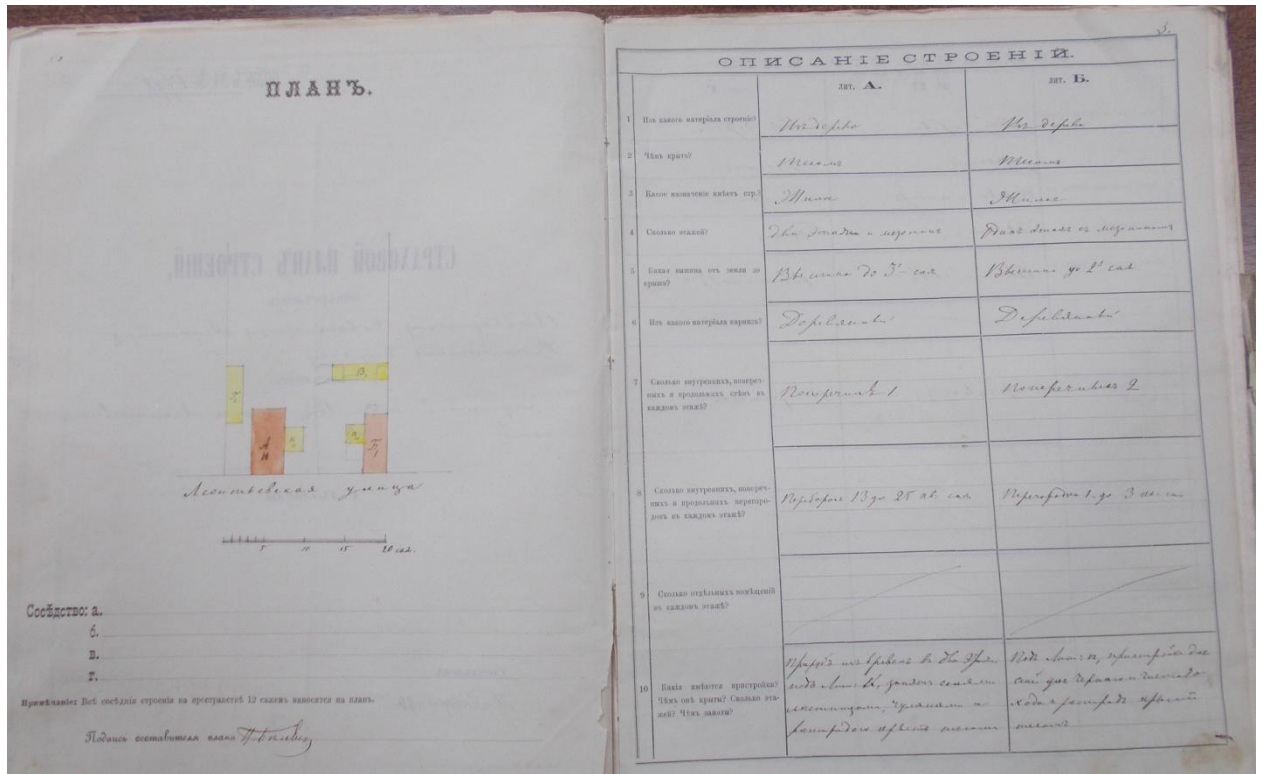 ПЛАНЪ.
А
Б
Леонтьевская улица
5 10 15 20 саж.
Сосѣдство: а.
б.
в.
г.
Примѣчаніе: Всѣ сосѣднія строенія на пространствѣ 12 саженъ наносятся на планъ.
Подпись составителя плана
3.
ОПИСАНІЕ СТРОЕНІЙ.
лит. А.
лит. Б.
1 Изъ какого матеріала строеніе?
Изъ дерева
Изъ дерева
2 Чѣмъ крыто?
Тесомъ
Тесомъ
3 Какое назначеніе имѣетъ стр.?
Жилое
Жилое
4 Сколько этажей?
Два этажа и мезонинъ
Одинъ этажъ съ мезониномъ
5 Какая вышина отъ земли до
крыши?
Вышина до 3 саж
Вышина до 2 саж
6 Изъ какого матеріала карнизъ?
Деревянный
Деревянный
7 Сколько внутреннихъ, попереч-
ныхъ и продольныхъ стѣнъ въ
каждомъ этажѣ?
Поперечныхъ 1
Поперечныхъ 2
8 Сколько внутреннихъ, попереч-
ныхъ и продольныхъ перегоро-
докъ въ каждомъ этажѣ?
13 до 25 кв. саж
1 до 3 кв. саж
9 Сколько отдѣльныхъ помѣщеній
въ каждомъ этажѣ?
10 Какія имѣются пристройки?
Чѣмъ онѣ крыты? Сколько эта-
жей? Чѣмъ заняты?
изъ бревенъ въ два этажа
подъ лит.
лестницами, чуланами и
крыть тесомъ
Подъ лит: пристройка для
сѣней для чернаго и чистаго
хода крытый
тесомъ